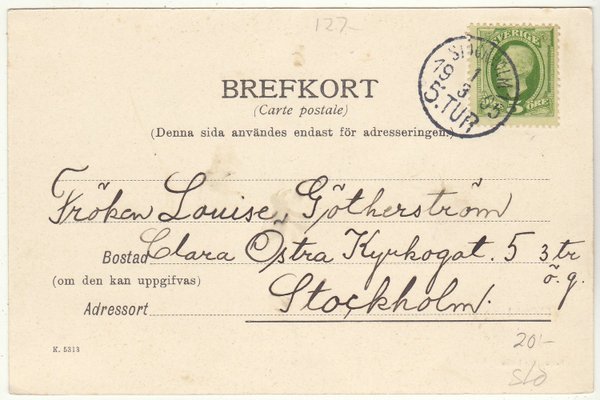 127.-
SVERIGE
STOCKHOLM
1
19 3 05
5.TUR
ÖRE
BREFKORT
(Carte postale)
(Denna sida användes endast för adresseringen.)
Fröken Louise Götherström
Bostad Clara Östra Kyrkogat. 5 3 tr
(om den kan uppgifvas) ö.g.
Adressort Stockholm.
K. 5313
20.-